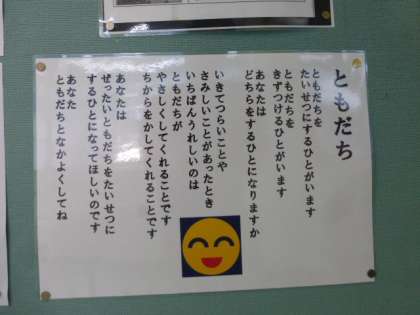 ともだち
ともだちを
たいせつにするひとがいます
ともだちを
きずつけるひとがいます
あなたは
どちらをするひとになりますか
いきてつらいことや
さみしいことがあったとき
いちばんうれしいのは
ともだちが
やさしくしてくれることです
ちからをかしてくれることです
あなたは
ぜったいともだちをたいせつに
するひとになってほしいのです
あなた
ともだちとなかよくしてね